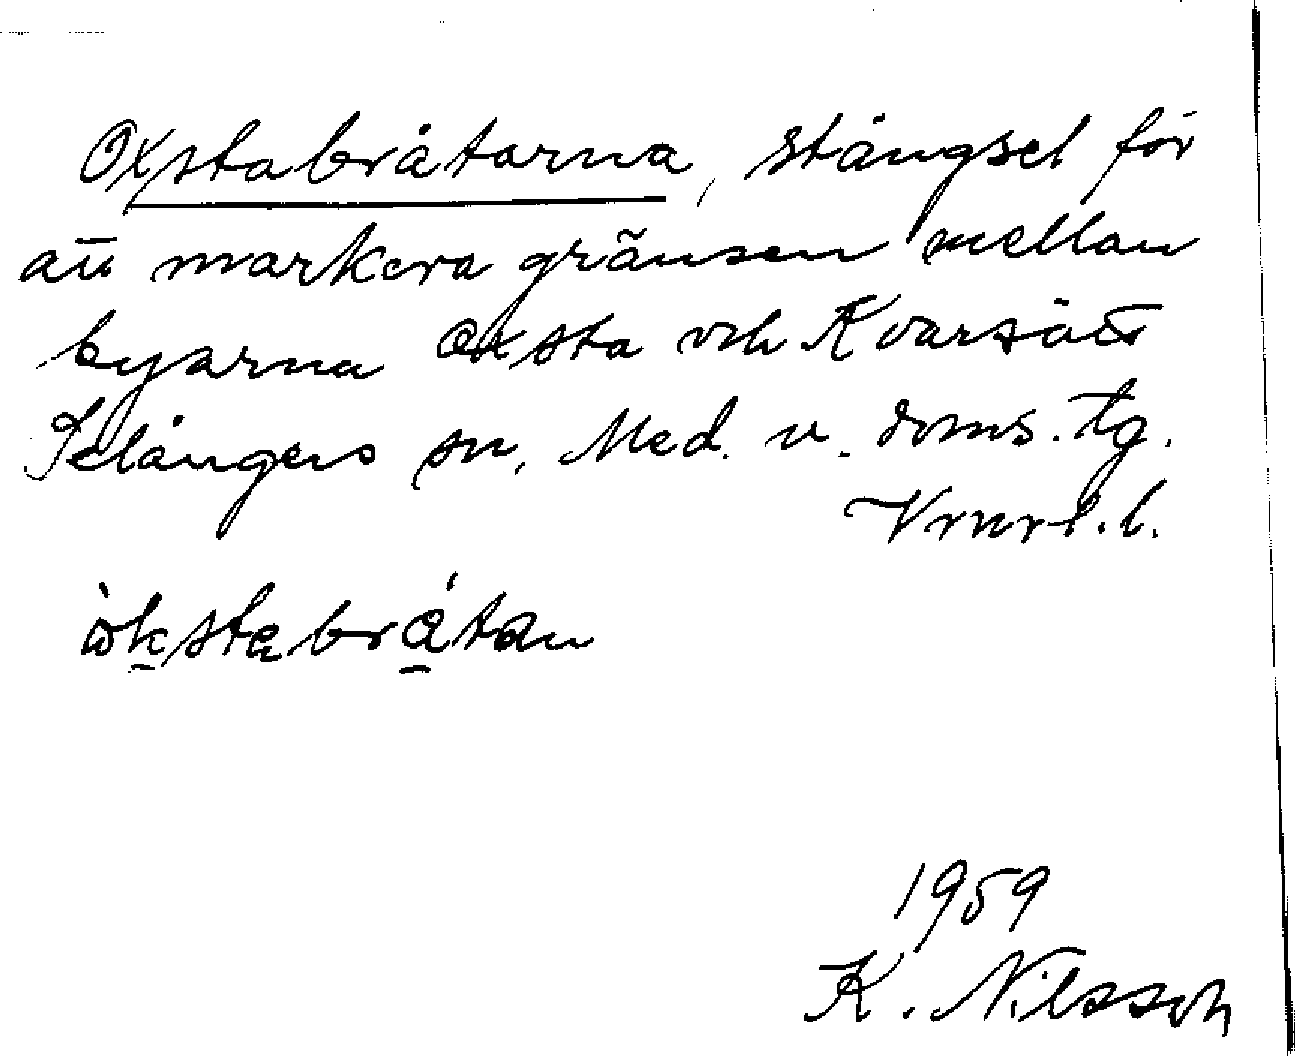 Oxstabråtarna, stängsel för
att markera gränsen mellan
byarna Oxsta och Kvarsätt
Selångers sn, Med. v. doms. tg.
Vrnrl. l.
òkstabrátan
1959
K. Nilsson